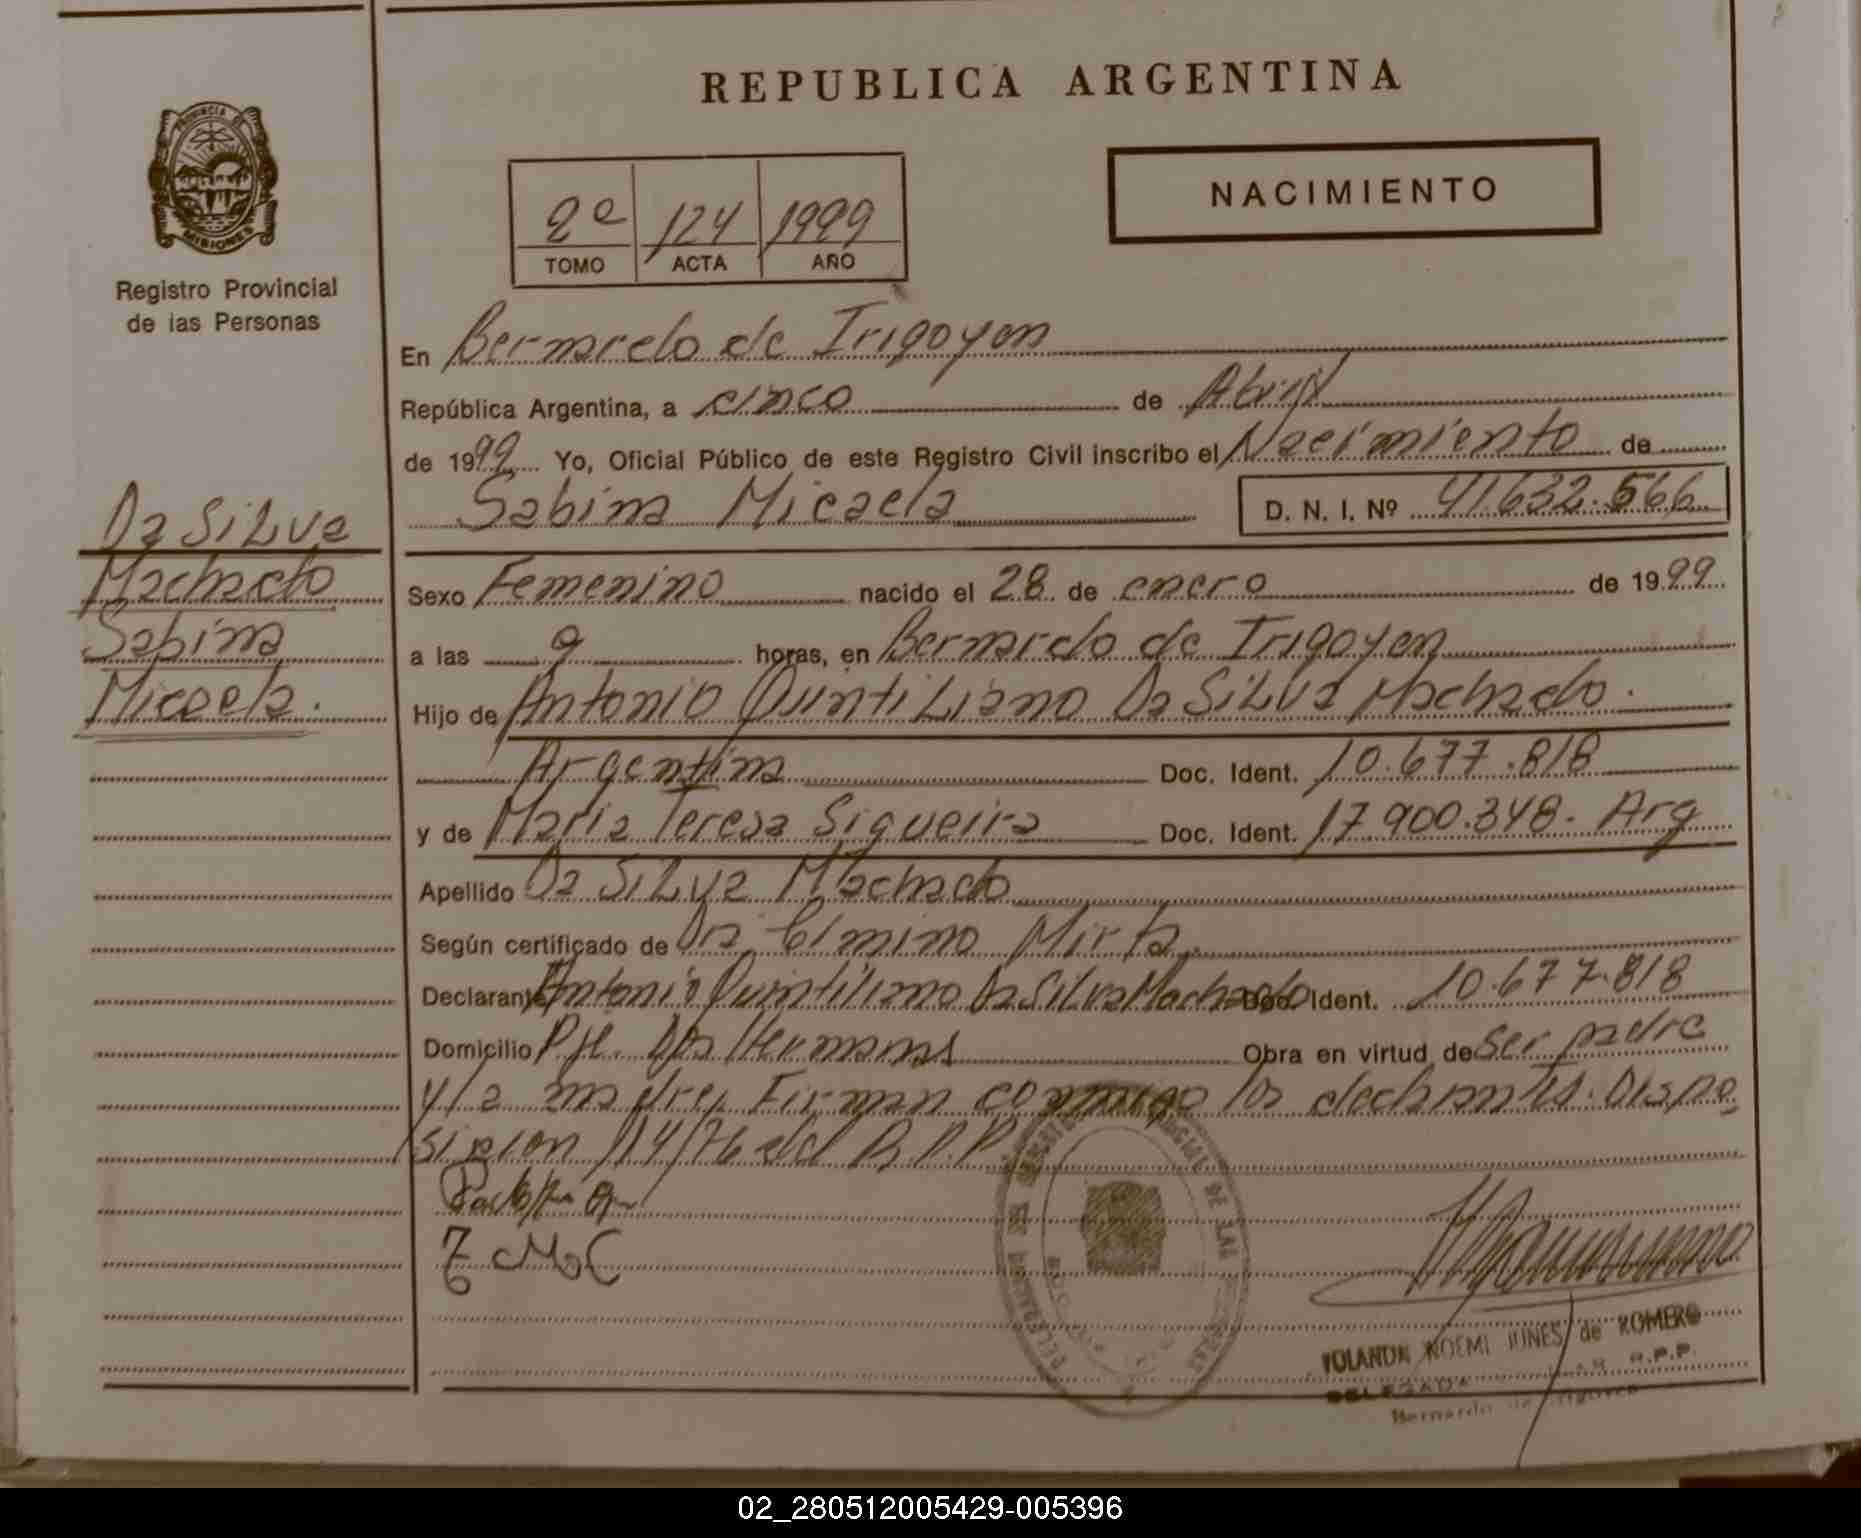 REPUBLICA ARGENTINA
PROVINCIA DE
MISIONES
Registro Provincial
de las Personas
2º 124 1999
TOMO ACTA AÑO
NACIMIENTO
En Bernardo de Irigoyen
República Argentina, a cinco de Abril
de 1999 Yo, Oficial Público de este Registro Civil inscribo el Nacimiento de
Sabina Micaela D. N. I. Nº 41.632.566
Da Silva
Machado
Sabina
Micaela.
Sexo Femenino nacido el 28 de enero de 1999
a las 9 horas, en Bernardo de Irigoyen
Hijo de Antonio Quintiliano Da Silva Machado.
Argentina Doc. Ident. 10.677.818
y de Maria Teresa Siqueira Doc. Ident. 17.900.348. Arg
Apellido Da Silva Machado
Según certificado de Dra. Mirta.
Declarante Antonio Quintiliano Da Silva Machado Doc. Ident. 10.677.818
Domicilio Pje. Dos Hermanas Obra en virtud de ser padre
y la madre, Firman conmigo los declarantes. Dispo
sicion 114/76 del R.P.P.
YOLANDA NOEMI de ROMERO
DELEGADA R.P.P.
Bernardo de Irigoyen
02_280512005429-005396